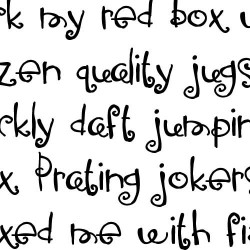 k my red box w
zen quality jugs
ckly daft jumpin
x Prating jokers
xed me with fi